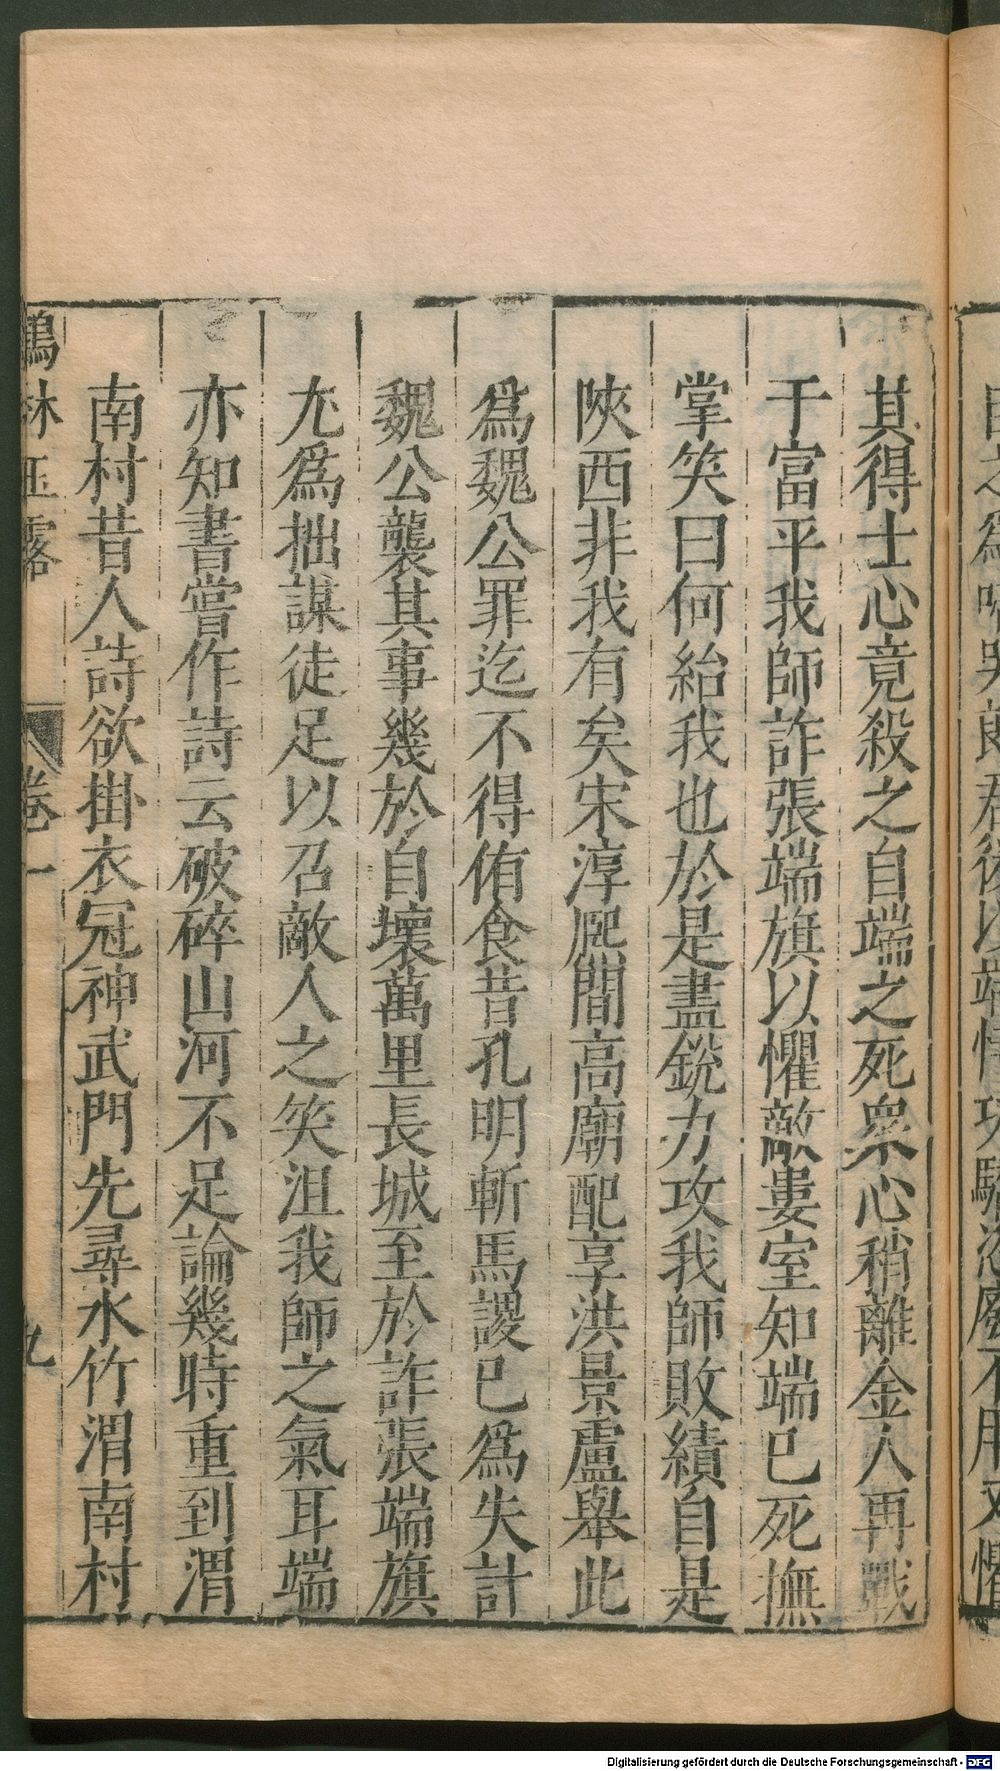 其得士心竟殺之自端之死衆心稍離金人再戰
于富平我師詐張端旗以懼敵婁室知端已死撫
掌笑曰何紿我也於是盡銳力攻我師敗績自是
陜西非我有矣宋淳熈間高廟配享洪景盧舉此
爲魏公罪迄不得侑食昔孔明斬馬謖已爲失計
魏公襲其事幾於自壞萬里長城至於詐張端旗
尢爲拙謀徒足以召敵人之笑沮我師之氣耳端
亦知書嘗作詩云破碎山河不足論幾時重到渭
南村昔人詩欲掛衣冠神武門先尋水竹渭南村
鶴林玉露 卷一 九
Digitalisierung gefördert durch die Deutsche Forschungsgemeinschaft - DFG